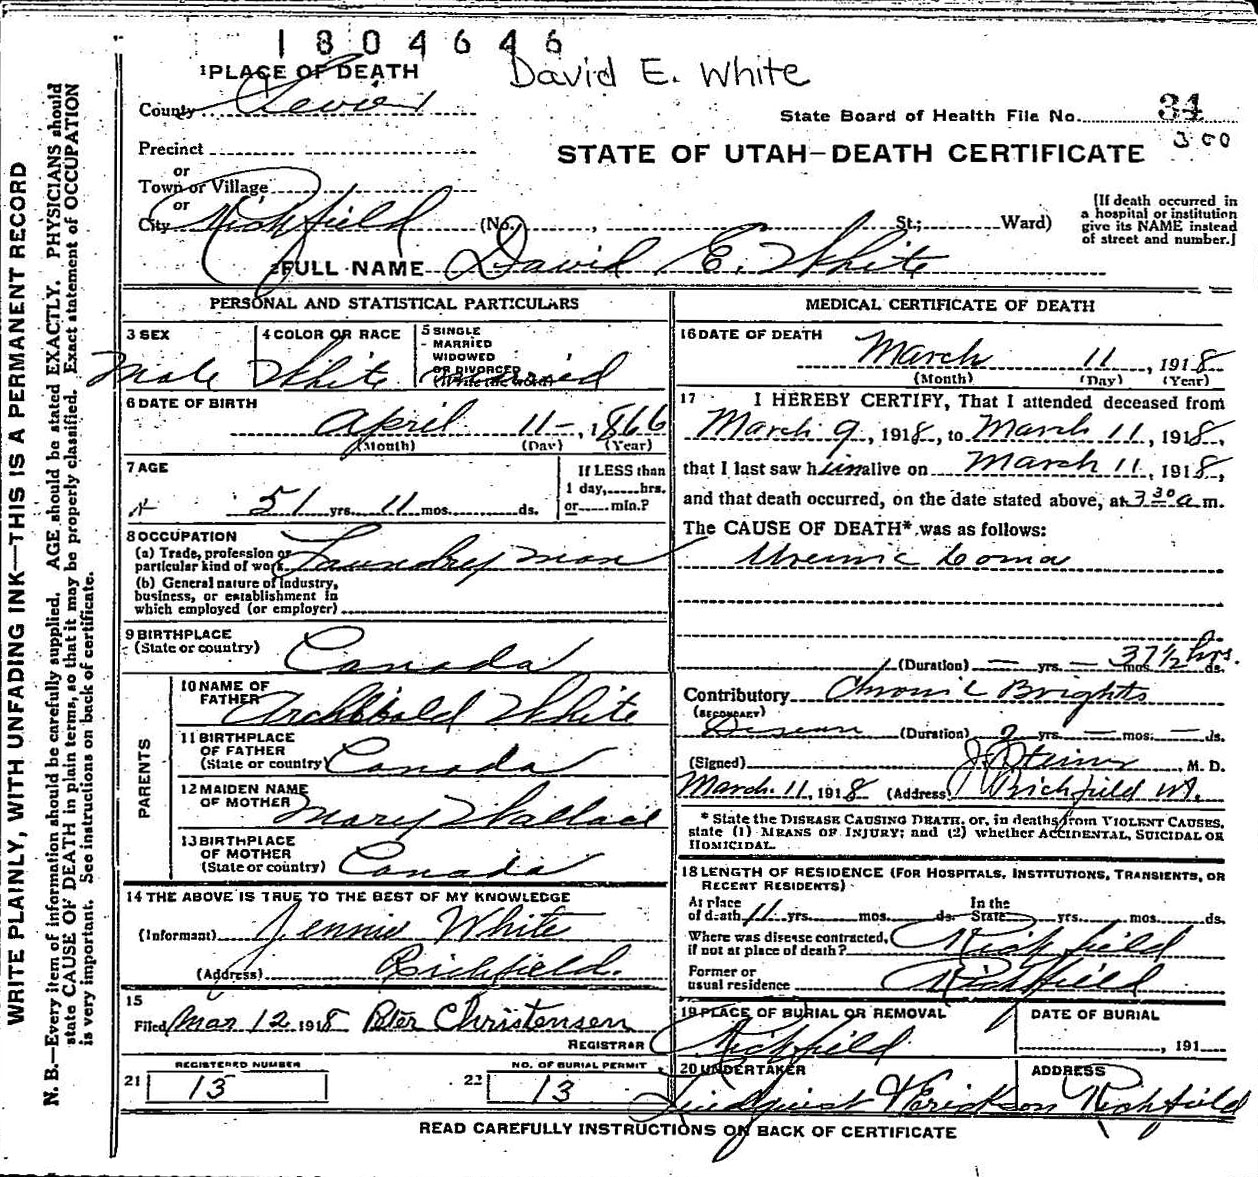 1804646
David E. White
1 PLACE OF DEATH
County Sevier
State Board of Health File No. 34
300
Precinct
STATE OF UTAH—DEATH CERTIFICATE
or
Town or Village
or
City Richfield (No. , St.; Ward)
[If death occurred in a hospital or institution give its NAME instead of street and number.]
2 FULL NAME David E. White
PERSONAL AND STATISTICAL PARTICULARS
3 SEX
Male
4 COLOR OR RACE
White
5 SINGLE
MARRIED
WIDOWED
OR DIVORCED
married
6 DATE OF BIRTH
April 11 -, 1866
(Month) (Day) (Year)
7 AGE
51 yrs. 11 mos. ds.
If LESS than
1 day,.....hrs.
or.....min.?
8 OCCUPATION
(a) Trade, profession or
particular kind of work Laundry man
(b) General nature of industry,
business, or establishment in
which employed (or employer)
9 BIRTHPLACE
(State or country) Canada
PARENTS
10 NAME OF
FATHER Archibald White
11 BIRTHPLACE
OF FATHER
(State or country) Canada
12 MAIDEN NAME
OF MOTHER Mary Wallace
13 BIRTHPLACE
OF MOTHER
(State or country) Canada
14 THE ABOVE IS TRUE TO THE BEST OF MY KNOWLEDGE
(Informant) Jennie White
(Address) Richfield.
15
Filed Mar 12 1918 Peter Christensen
REGISTRAR
REGISTERED NUMBER
21 13
NO. OF BURIAL PERMIT
22 13
MEDICAL CERTIFICATE OF DEATH
16 DATE OF DEATH
March 11, 1918
(Month) (Day) (Year)
17 I HEREBY CERTIFY, That I attended deceased from
March 9, 1918, to March 11, 1918,
that I last saw him alive on March 11, 1918,
and that death occurred, on the date stated above, at 3 30 a m.
The CAUSE OF DEATH* was as follows:
Uremic Coma
37 1/2 hrs.
(Duration) — yrs. — mos. ds.
Contributory Chronic Brights
(SECONDARY)
Disease (Duration) 2 yrs. — mos. — ds.
(Signed) J. Steiner, M. D.
March 11, 1918 (Address) Richfield Ut.
* State the DISEASE CAUSING DEATH, or, in deaths from VIOLENT CAUSES,
state (1) MEANS OF INJURY; and (2) whether ACCIDENTAL, SUICIDAL OR
HOMICIDAL.
18 LENGTH OF RESIDENCE (FOR HOSPITALS, INSTITUTIONS, TRANSIENTS, OR
RECENT RESIDENTS)
At place
of death 11 yrs. mos. ds.
In the
State yrs. mos. ds.
Where was disease contracted,
if not at place of death? Richfield
Former or
usual residence Richfield
19 PLACE OF BURIAL OR REMOVAL
Richfield
DATE OF BURIAL
, 191
20 UNDERTAKER
Lindquist & Erickson
ADDRESS
Richfield
READ CAREFULLY INSTRUCTIONS ON BACK OF CERTIFICATE
WRITE PLAINLY, WITH UNFADING INK—THIS IS A PERMANENT RECORD
N. B.—Every item of information should be carefully supplied. AGE should be stated EXACTLY. PHYSICIANS should
state CAUSE OF DEATH in plain terms, so that it may be properly classified. Exact statement of OCCUPATION
is very important. See instructions on back of certificate.